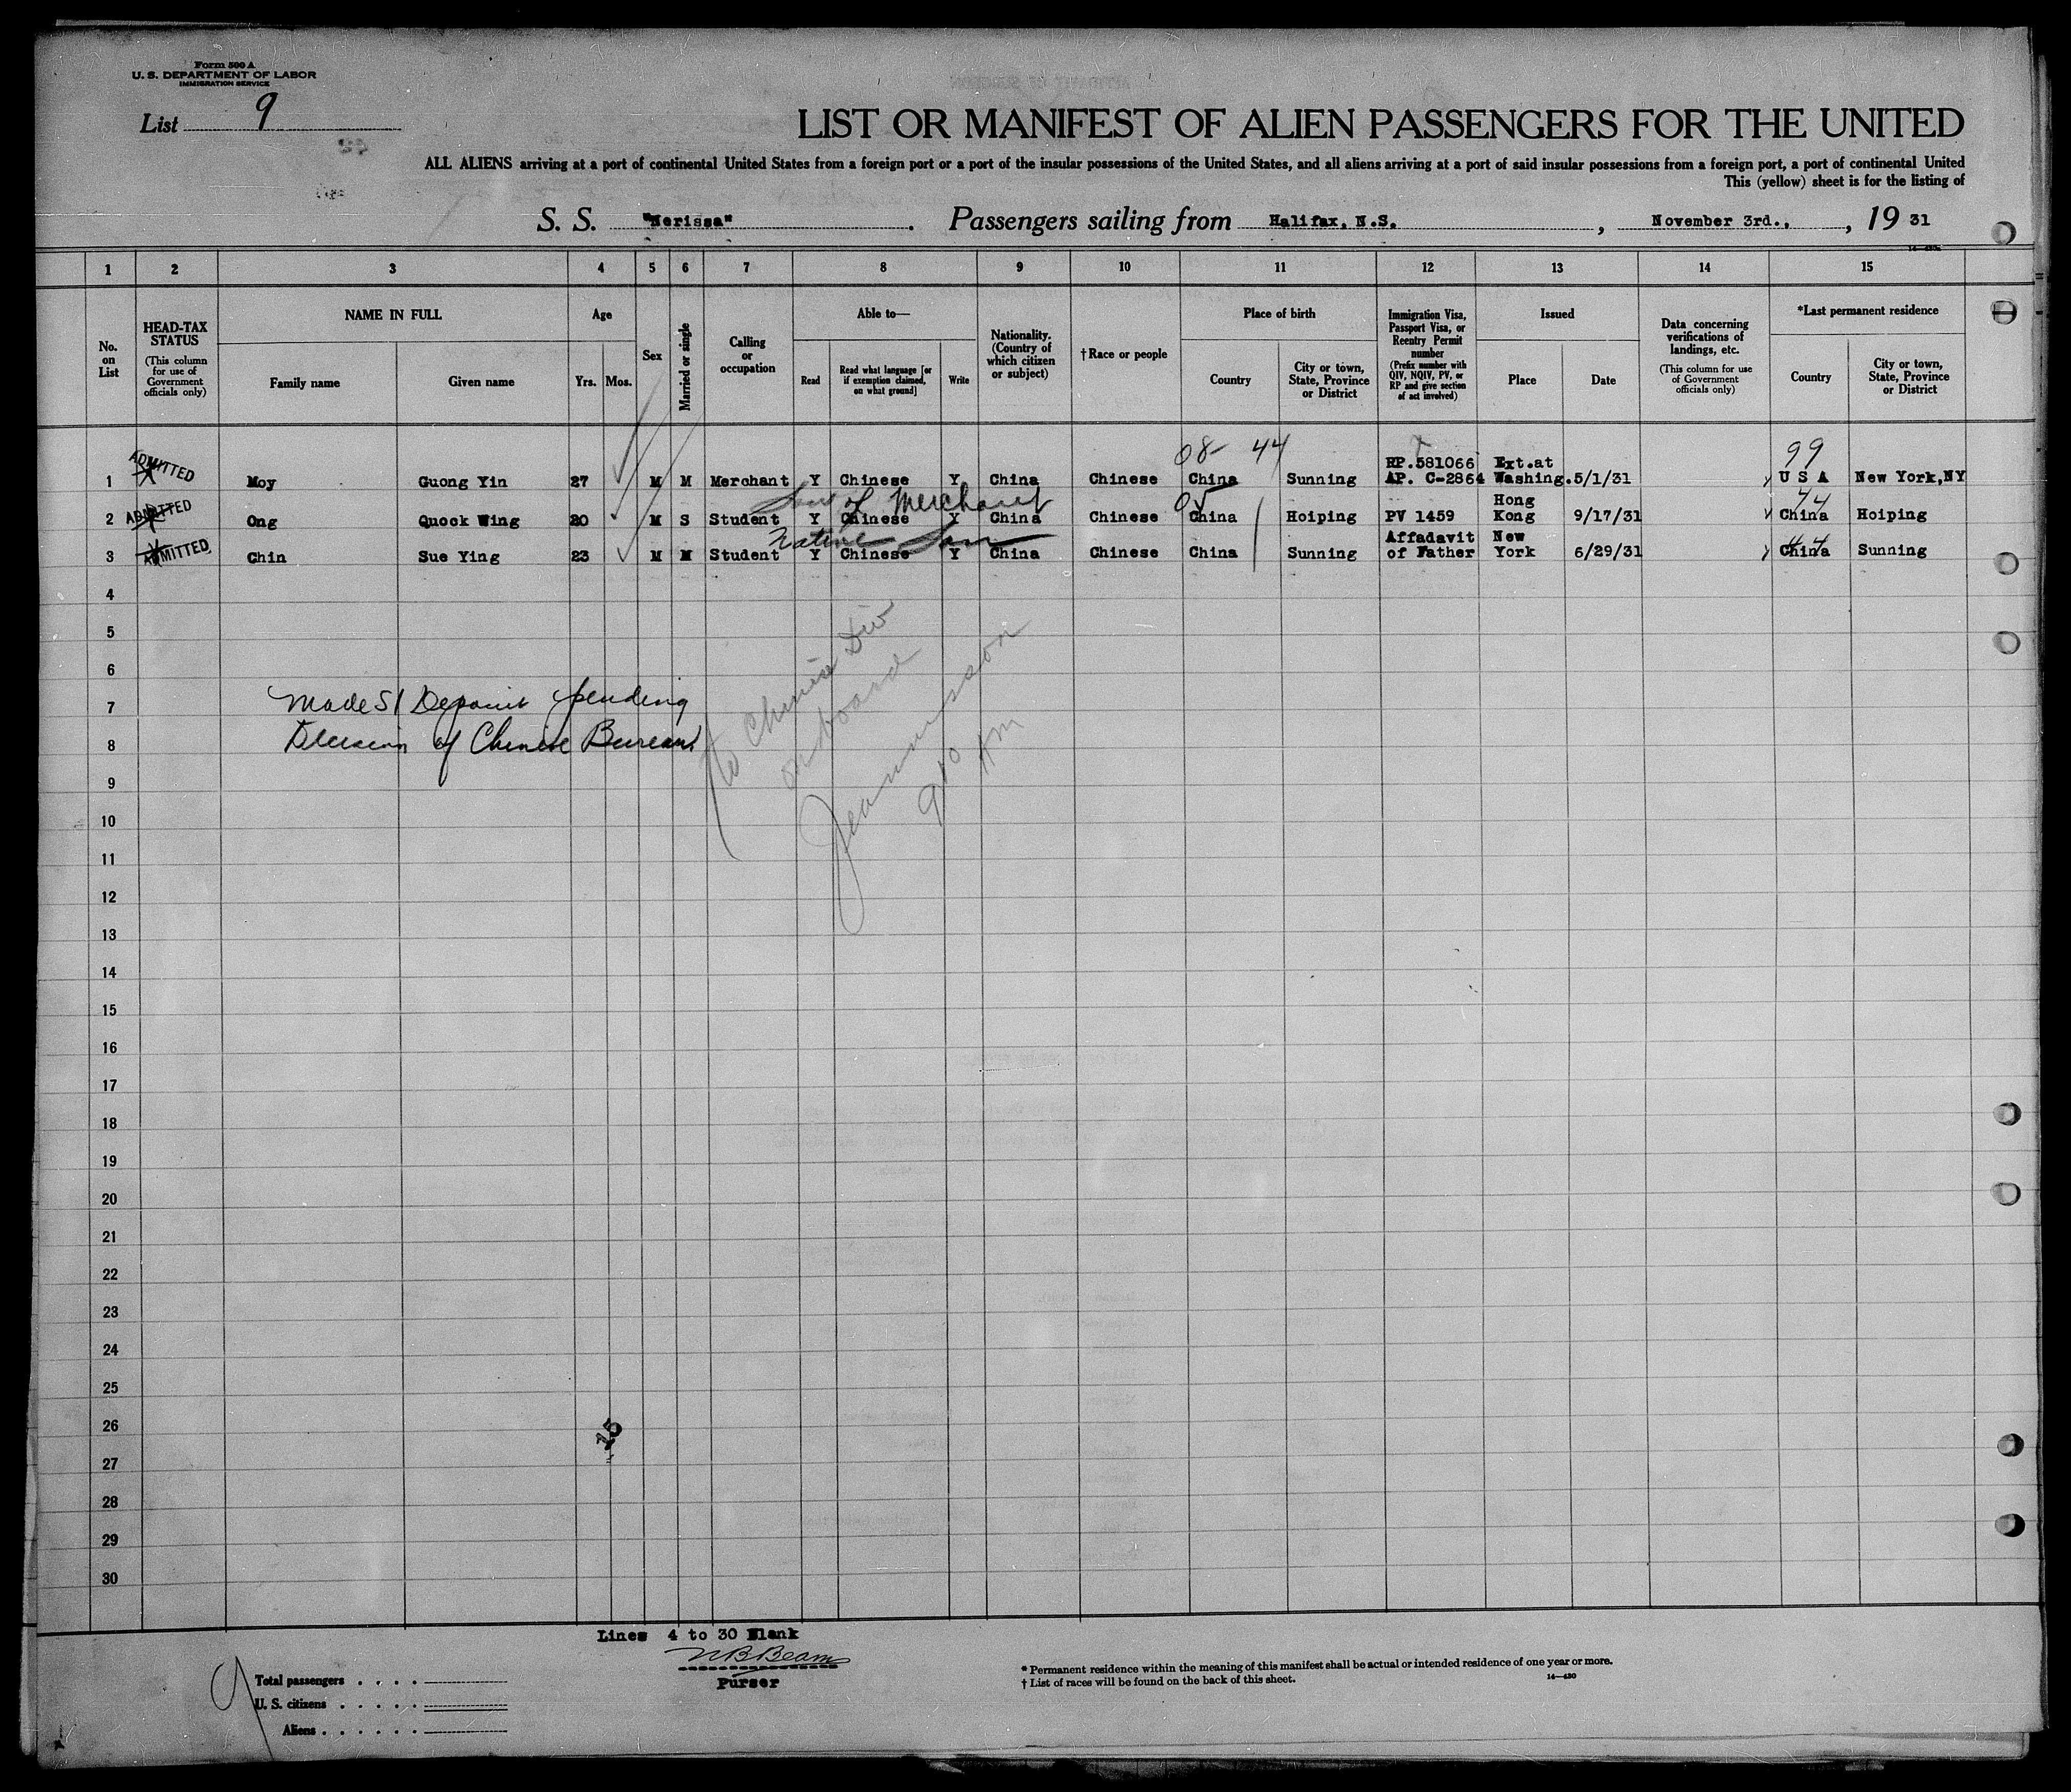 Form 500 A
U. S. DEPARTMENT OF LABOR
IMMIGRATION SERVICE
List 9
LIST OR MANIFEST OF ALIEN PASSENGERS FOR THE UNITED
ALL ALIENS arriving at a port of continental United States from a foreign port or a port of the insular possessions of the United States, and all aliens arriving at a port of said insular possessions from a foreign port, a port of continental United
This (yellow) sheet is for the listing of
S. S. "Nerissa". Passengers sailing from Halifax, N.S., November 3rd., , 19 31
1 2 3 4 5 6 7 8 9 10 11 12 13 14 15
No. on List
HEAD-TAX STATUS
(This column for use of Government officials only)
NAME IN FULL
Family name
Given name
Age
Yrs. Mos.
Sex
Married or single
Calling or occupation
Able to—
Read
Read what language [or if exemption claimed, on what ground]
Write
Nationality. (Country of which citizen or subject)
† Race or people
Place of birth
Country
City or town, State, Province or District
Immigration Visa, Passport Visa, or Reentry Permit number
(Prefix number with QIV, NQIV, PV, or RP and give section of act involved)
Issued
Place
Date
Data concerning verifications of landings, etc.
(This column for use of Government officials only)
*Last permanent residence
Country
City or town, State, Province or District
08- 44 99
RP.581066 Ext.at
1 ADMITTED Moy Guong Yin 27 M M Merchant Y Chinese Y China Chinese China Sunning AP. C-2864 Washing. 5/1/31 U S A New York,NY
Son of Merchant 05 Hong 44
2 ADMITTED Ong Quock Wing 20 M S Student Y Chinese Y China Chinese China Hoiping PV 1459 Kong 9/17/31 China Hoiping
Native Son Affadavit New 44
3 ADMITTED Chin Sue Ying 23 M M Student Y Chinese Y China Chinese China Sunning of Father York 6/29/31 China Sunning
4
5
6
7
8
9
10
11
12
13
14
15
16
17
18
19
20
21
22
23
24
25
26
27
28
29
30
Made SI Deposit pending
Decision of Chinese Bureau
To Chinese Div
on board
910 AM
Lines 4 to 30 Blank
N B Beam
Purser
Total passengers
U. S. citizens
Aliens
* Permanent residence within the meaning of this manifest shall be actual or intended residence of one year or more.
† List of races will be found on the back of this sheet.
14—430